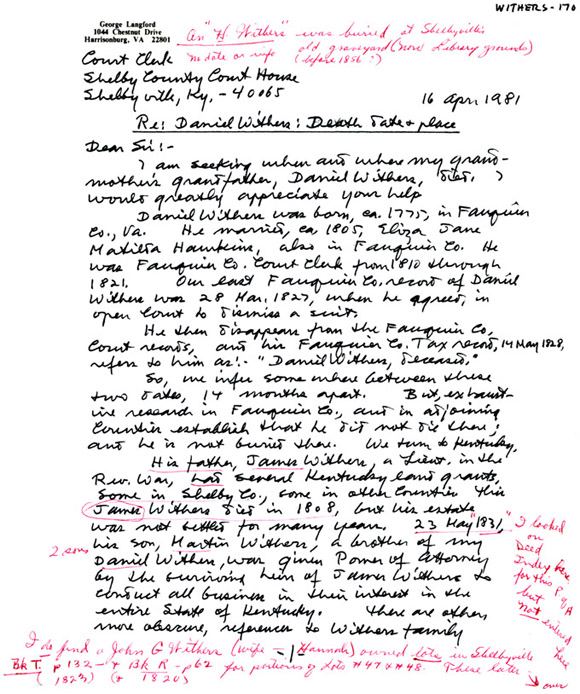 WITHERS - 170
George Langford
1044 Chestnut Drive
Harrisonburg, VA 22801
An "H. Withers" was buried at Shelbyville's
old graveyard (now Library grounds)
no date or info (before 1856?)
Court Clerk
Shelby County Court House
Shelbyville, Ky, - 40065
16 Apr 1981
Re: Daniel Withers: Death Date & place
Dear Sir:-
I am seeking when and where my grand-
mother's grandfather, Daniel Withers, died. I
would greatly appreciate your help
Daniel Withers was born, ca. 1775, in Fauquier
Co., Va. He married, ca 1805, Eliza Jane
Matilda Hawkins, also in Fauquier Co. He
was Fauquier Co. Court Clerk from 1810 through
1821. Our last Fauquier Co. record of Daniel
Withers was 28 Mar. 1827, when he agreed, in
open Court to dismiss a suit.
He then disappears from the Fauquier Co,
Court records, and his Fauquier Co. Tax record, 14 May 1828,
refers to him as:- "Daniel Withers, deceased."
So, we infer some where between these
two dates, 14 months apart. But, exhaust-
ive research in Fauquier Co., and in adjoining
Counties establish that he did not die there;
and he is not buried there. We turn to Kentucky.
His father, James Withers, a Lieut. in the
Rev. War, had several Kentucky land grants,
some in Shelby Co., some in other Counties This
James Withers died in 1808, but his estate
was not settled for many years. 23 May "1831,"
his son, Martin Withers, a brother of my
Daniel Withers, was given Power of Attorney
by the surviving heirs of James Withers to
conduct all business in their interest in the
entire State of Kentucky. There are other,
more obscure, references to Withers family
2 sons
I looked
on
Deed
Index here
for this P of A
but
not entered
here
-1-
I do find a John G Withers (wife - Hannah) owned lots in Shelbyville
Bk T. - p 132 - & Bk R - p 62 for portions of Lots #47 & #48. These later
(1823) (& 1820)
over